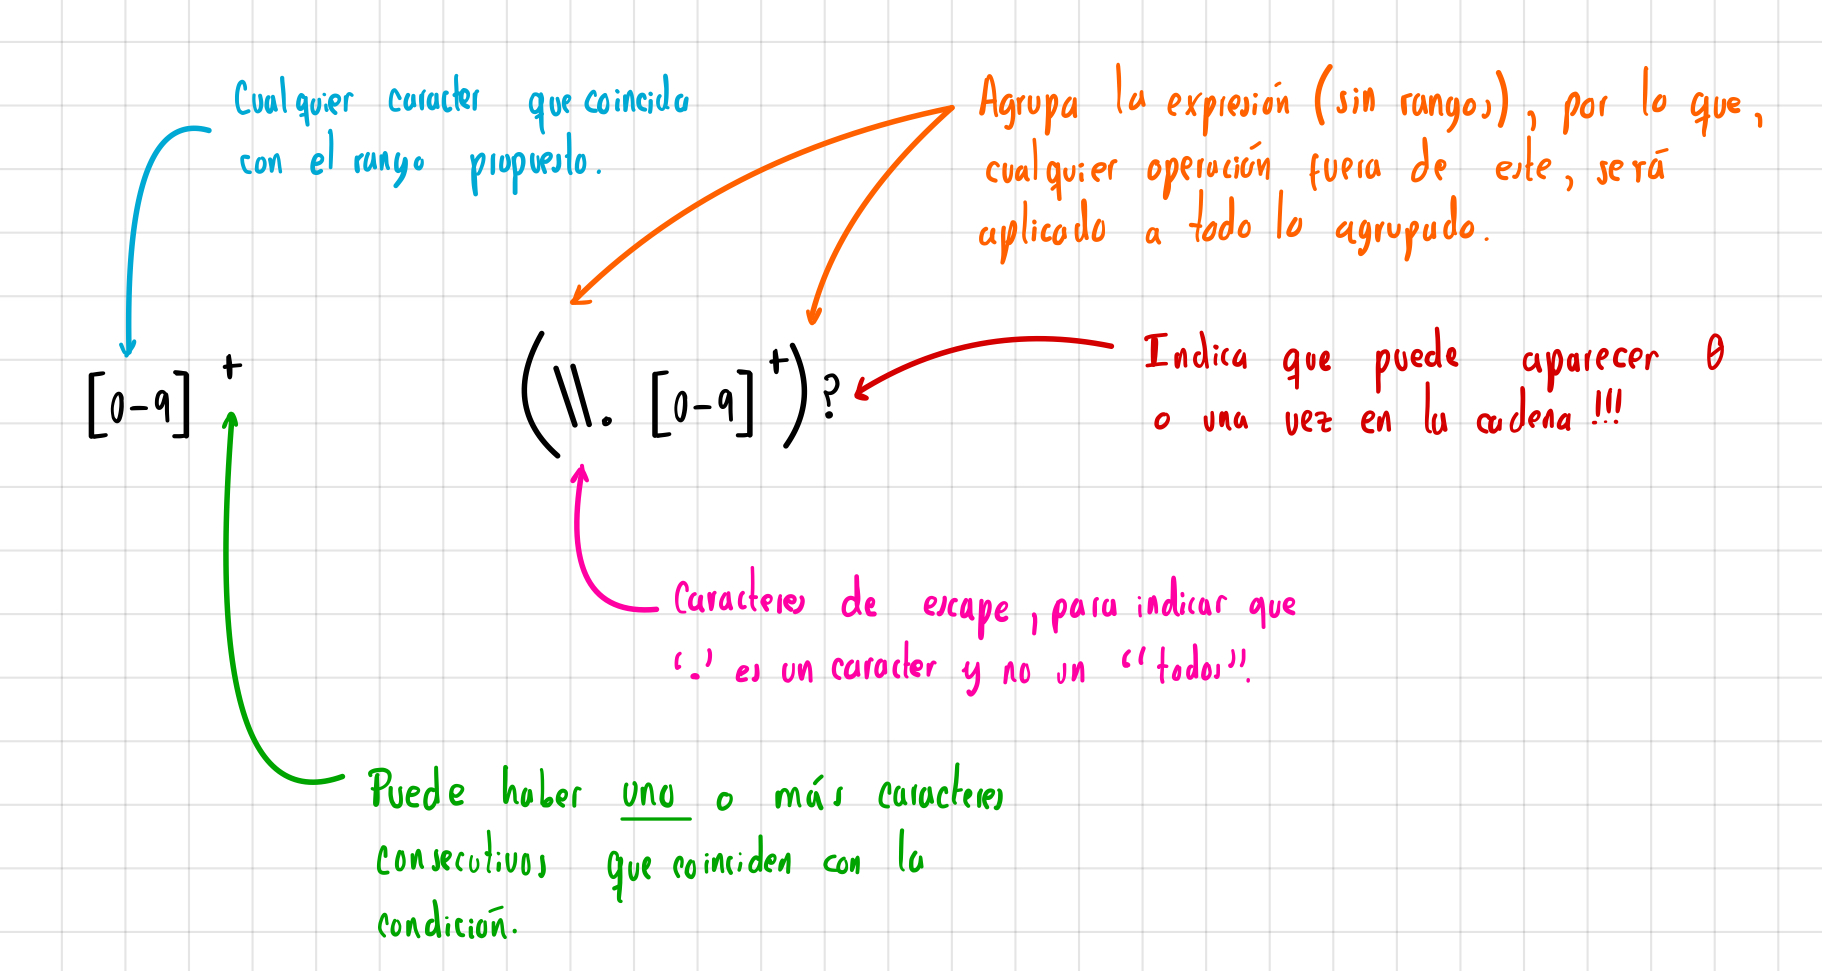 Cualquier caracter que coincida
con el rango propuesto.
Agrupa la expresión (sin rangos), por lo que,
cualquier operación fuera de este, será
aplicado a todo lo agrupado.
[0-9]+ (\\. [0-9]+)?
Indica que puede aparecer 0
o una vez en la cadena!!!
Caracteres de escape, para indicar que
'.' es un caracter y no un "todos".
Puede haber uno o más caracteres
consecutivos que coinciden con la
condición.